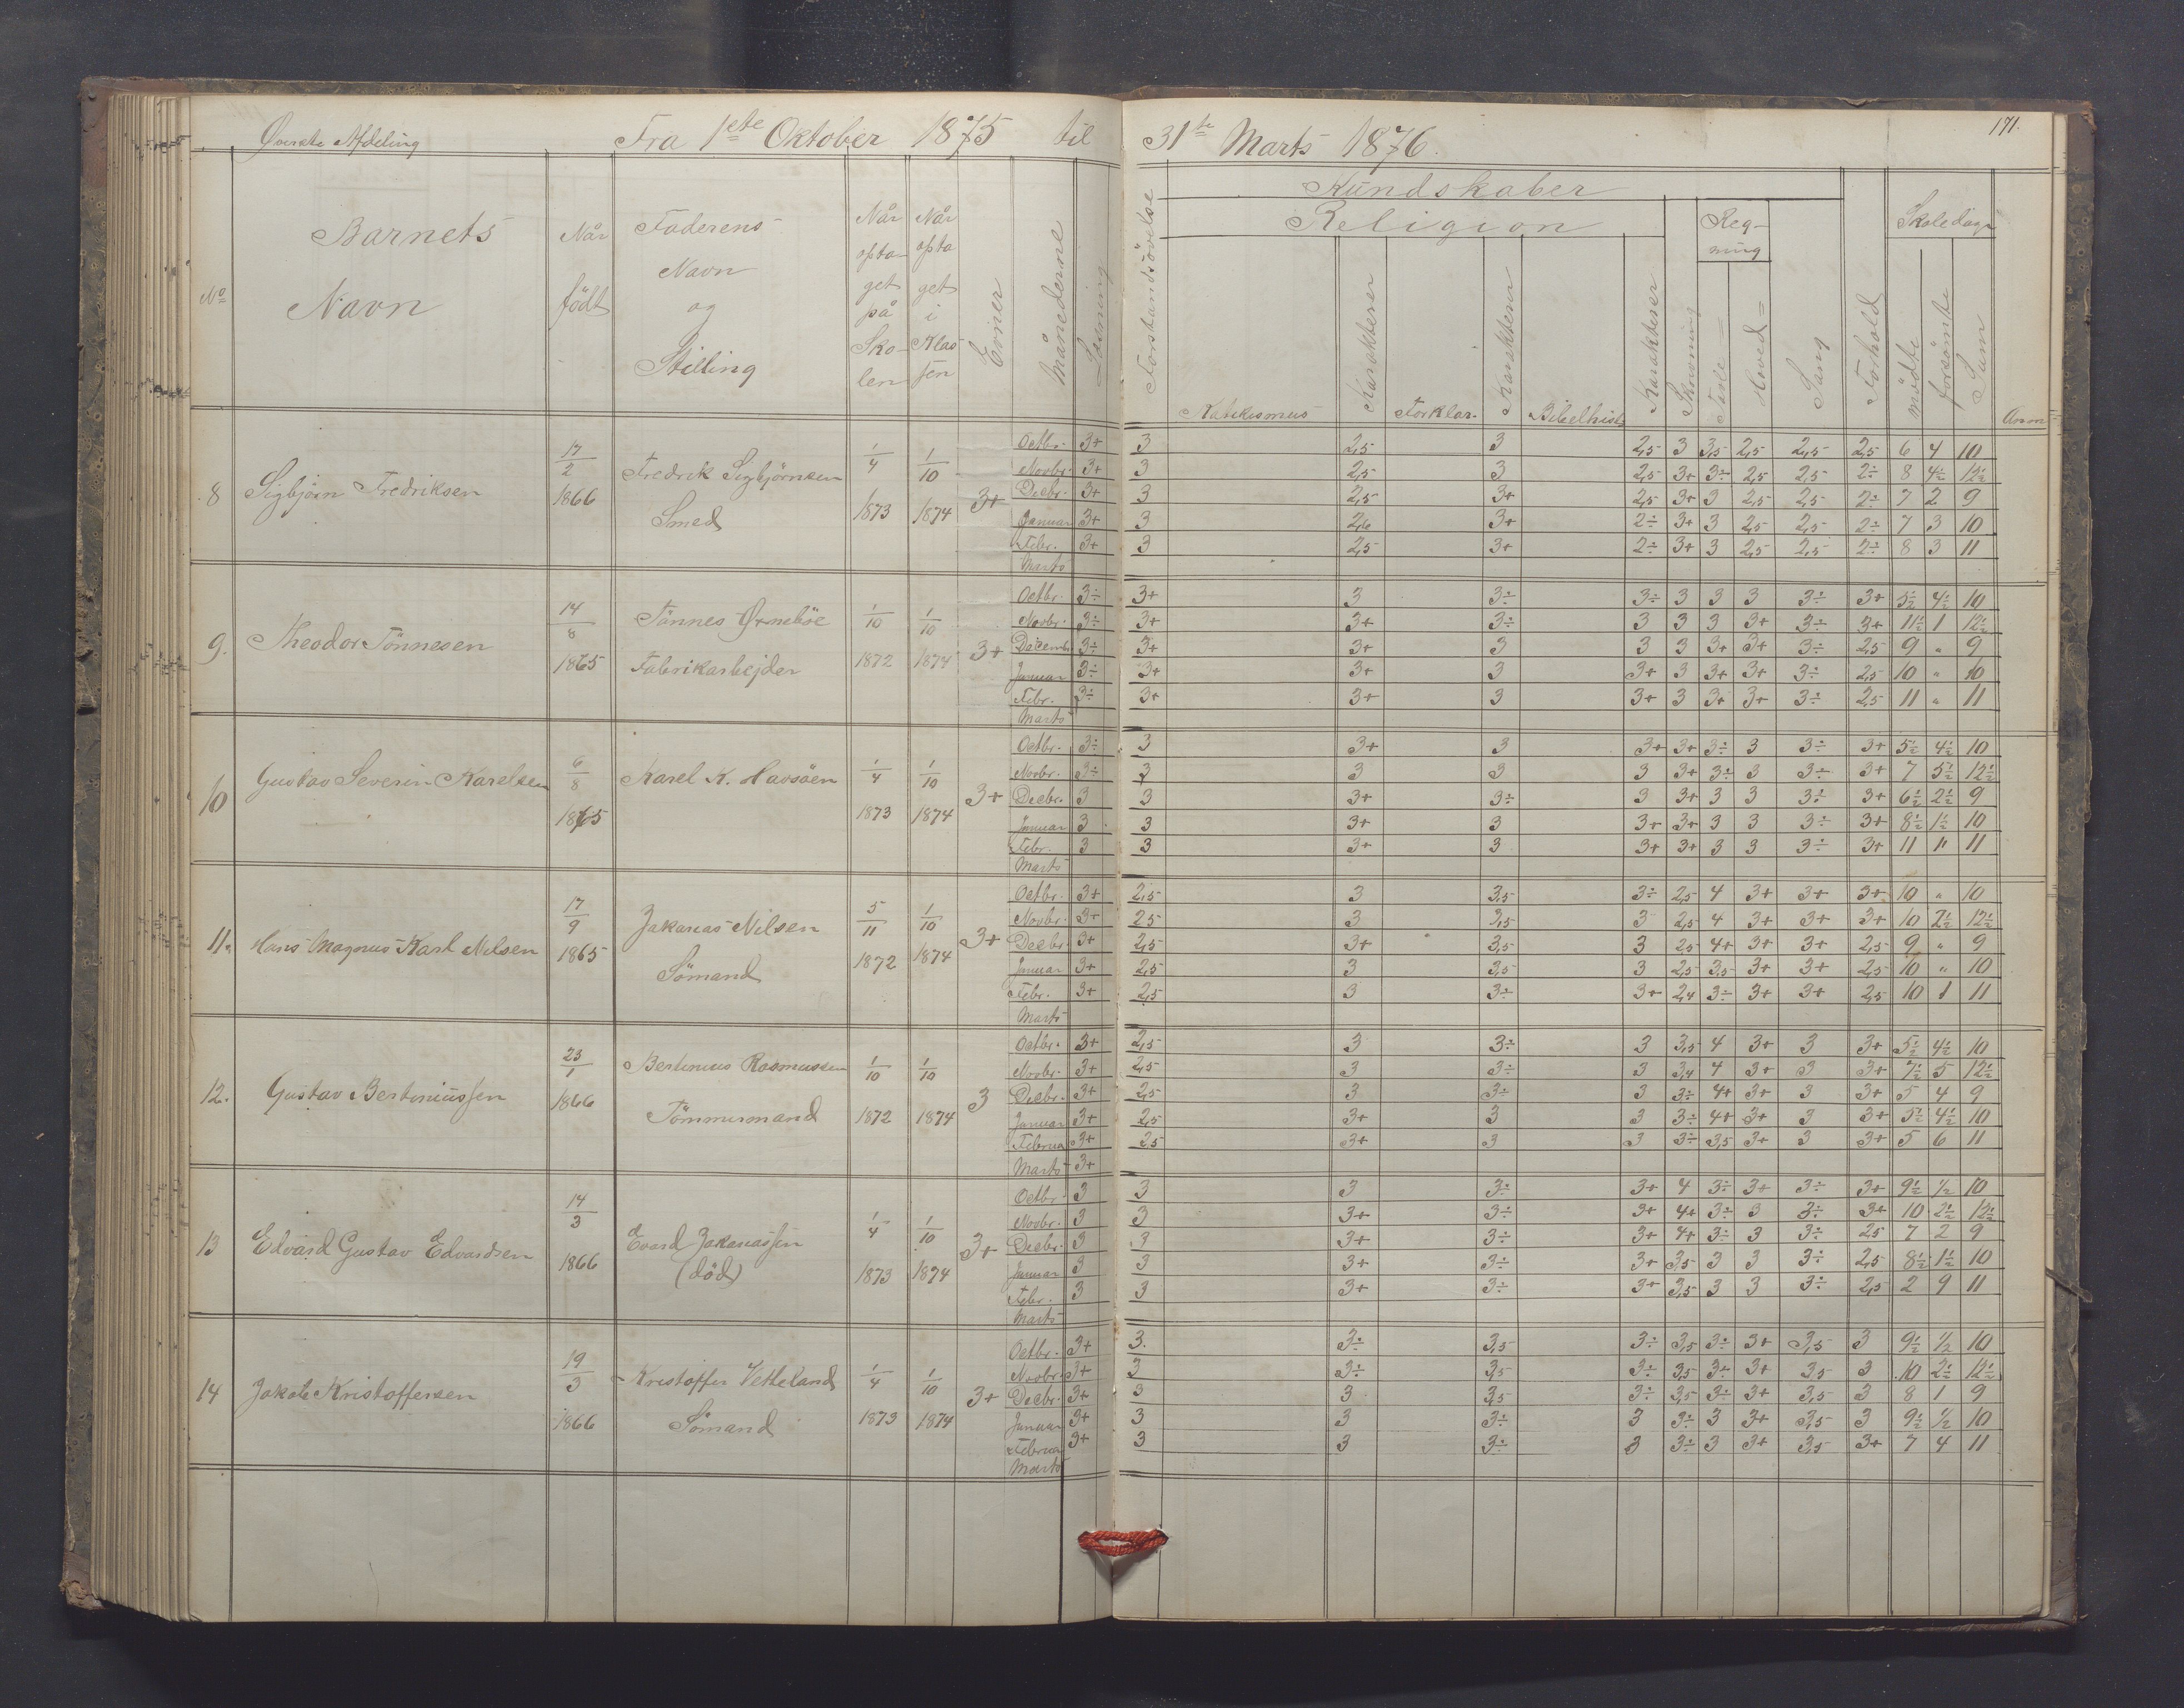 Øverste Afdeling Fra 1ste Oktober 1875 til 31te Marts 1876. 171.
No Barnets Navn Når født Faderens Navn og Stilling Når optaget på Skolen Når optaget i Klassen Evner Månederne Læsning Forstandsøvelse Kundskaber Religion Katekismus Karakterer Forklar. Karakterer Bibelhist. Karakterer Skrivning Regning Tavle= Hoved= Sang Forhold Skoledage mödte forsömte Sum Anm
8 Sigbjörn Fredriksen 17/2 1866 Fredrik Sigbjörnsen Smed 1/4 1873 1/10 1874 3+
Octbr. 3+ 3 2,5 3 2,5 3 3,5 2,5 2,5 2,5 6 4 10
Novbr. 3+ 3 2,5 3 2,5 3+ 3÷ 2,5 2,5 2÷ 8 4½ 12½
Decbr. 3+ 3 2,5 3+ 2,5 3+ 3 2,5 2,5 2÷ 7 2 9
Januar 3+ 3 2,6 3+ 2÷ 3+ 3 2,5 2,5 2÷ 7 3 10
Febr. 3+ 3 2,5 3+ 2÷ 3+ 3 2,5 2,5 2÷ 8 3 11
Marts
9. Theodor Tönnesen 14/8 1865 Tönnes Ørneböe Fabrikarbejder 1/10 1872 1/10 1874 3+
Octbr. 3÷ 3+ 3 3÷ 3÷ 3 3 3 3÷ 3+ 5½ 4½ 10
Novbr. 3÷ 3+ 3+ 3÷ 3 3 3 3+ 3÷ 3+ 11½ 1 12½
Decemb 3÷ 3+ 3+ 3 3 3 3+ 3+ 3÷ 2,5 9 " 9
Januar 3÷ 3+ 3+ 3 3+ 3 3+ 3+ 3÷ 2,5 10 " 10
Febr. 3÷ 3+ 3+ 3 3+ 3 3+ 3+ 3÷ 2,5 11 " 11
Marts
10 Gustav Severin Karelsen 6/8 1865 Karel K. Havsöen 1/4 1873 1/10 1874 3+
Octbr. 3÷ 3 3+ 3 3+ 3+ 3÷ 3 3÷ 3+ 5½ 4½ 10
Novbr. 3÷ 3 3 3 3 3+ 3÷ 3 3÷ 3+ 7 5½ 12½
Decbr. 3 3 3+ 3÷ 3 3+ 3 3 3÷ 3+ 6½ 2½ 9
Januar 3 3 3+ 3 3+ 3+ 3 3 3÷ 3+ 8½ 1½ 10
Febr. 3 3 3+ 3 3+ 3+ 3 3 3÷ 3+ 11 " 11
Marts
11. Hans Magnus Karl Nilsen 17/9 1865 Zakarias Nilsen Sömand 5/11 1872 1/10 1874 3+
Octbr. 3+ 2,5 3 3,5 3÷ 2,5 4 3+ 3+ 3+ 10 " 10
Novbr. 3+ 2,5 3 3,5 3 2,5 4 3+ 3+ 3+ 10 2½ 12½
Decbr. 3+ 2,5 3+ 3,5 3 2,5 4+ 3+ 3+ 2,5 9 " 9
Januar 3+ 2,5 3 3,5 3 2,5 3,5 3+ 3+ 2,5 10 " 10
Febr. 3+ 2,5 3 3÷ 3+ 2,4 3÷ 3+ 3+ 2,5 10 1 11
Marts
12. Gustav Bertiniussen 23/1 1866 Bertinius Rasmussen Tömmermand 1/10 1872 1/10 1874 3
Octbr. 3+ 2,5 3 3÷ 3 3,5 4 3+ 3 3+ 5½ 4½ 10
Novbr. 3+ 2,5 3 3÷ 3 3,4 4 3+ 3 3+ 7½ 5 12½
Decbr. 3+ 2,5 3 3÷ 3 3÷ 4+ 3+ 3 3+ 5 4 9
Januar 3+ 2,5 3+ 3 3 3÷ 4+ 3+ 3 3+ 5½ 4½ 10
Februa 3+ 2,5 3+ 3 3 3÷ 3,5 3+ 3 3+ 5 6 11
Marts 3+
13 Edvard Gustav Edvardsen 14/3 1866 Evard Zakariassen (död) 1/4 1873 1/10 1874 3+
Octbr. 3 3 3 3÷ 3+ 4 3÷ 3+ 3÷ 3+ 9½ ½ 10
Novbr. 3 3 3+ 3÷ 3+ 4+ 3÷ 3 3÷ 3+ 10 2½ 12½
Decbr. 3 3 3+ 3÷ 3+ 4+ 3÷ 3 3÷ 2,5 7 2 9
Januar 3 3 3+ 3÷ 3+ 3,5 3 3 3÷ 2,5 8½ 1½ 10
Febr. 3 3 3+ 3÷ 3+ 3,5 3 3 3÷ 2,5 2 9 11
Marts
14 Jakob Kristoffersen 19/3 1866 Kristoffer Vetteland Sömand 1/4 1873 1/10 1874 3+
Octbr. 3+ 3 3÷ 3,5 3÷ 3,5 3÷ 3+ 3,5 3 9½ ½ 10
Novbr. 3+ 3 3÷ 3,5 3÷ 3,5 3÷ 3+ 3,5 3 10 2½ 12½
Decbr. 3+ 3 3 3,5 3÷ 3,5 3÷ 3+ 3,5 3 8 1 9
Januar 3+ 3 3 3÷ 3 3÷ 3 3+ 3,5 3 9½ ½ 10
Februa 3+ 3 3 3÷ 3 3÷ 3 3+ 3,5 3+ 7 4 11
Marts